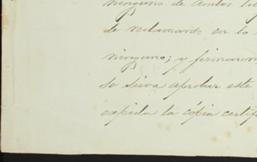 ninguno de ambos
se reclamará en lo
ninguno; y firmaron
se sirva aprobar este
expida la copia certif